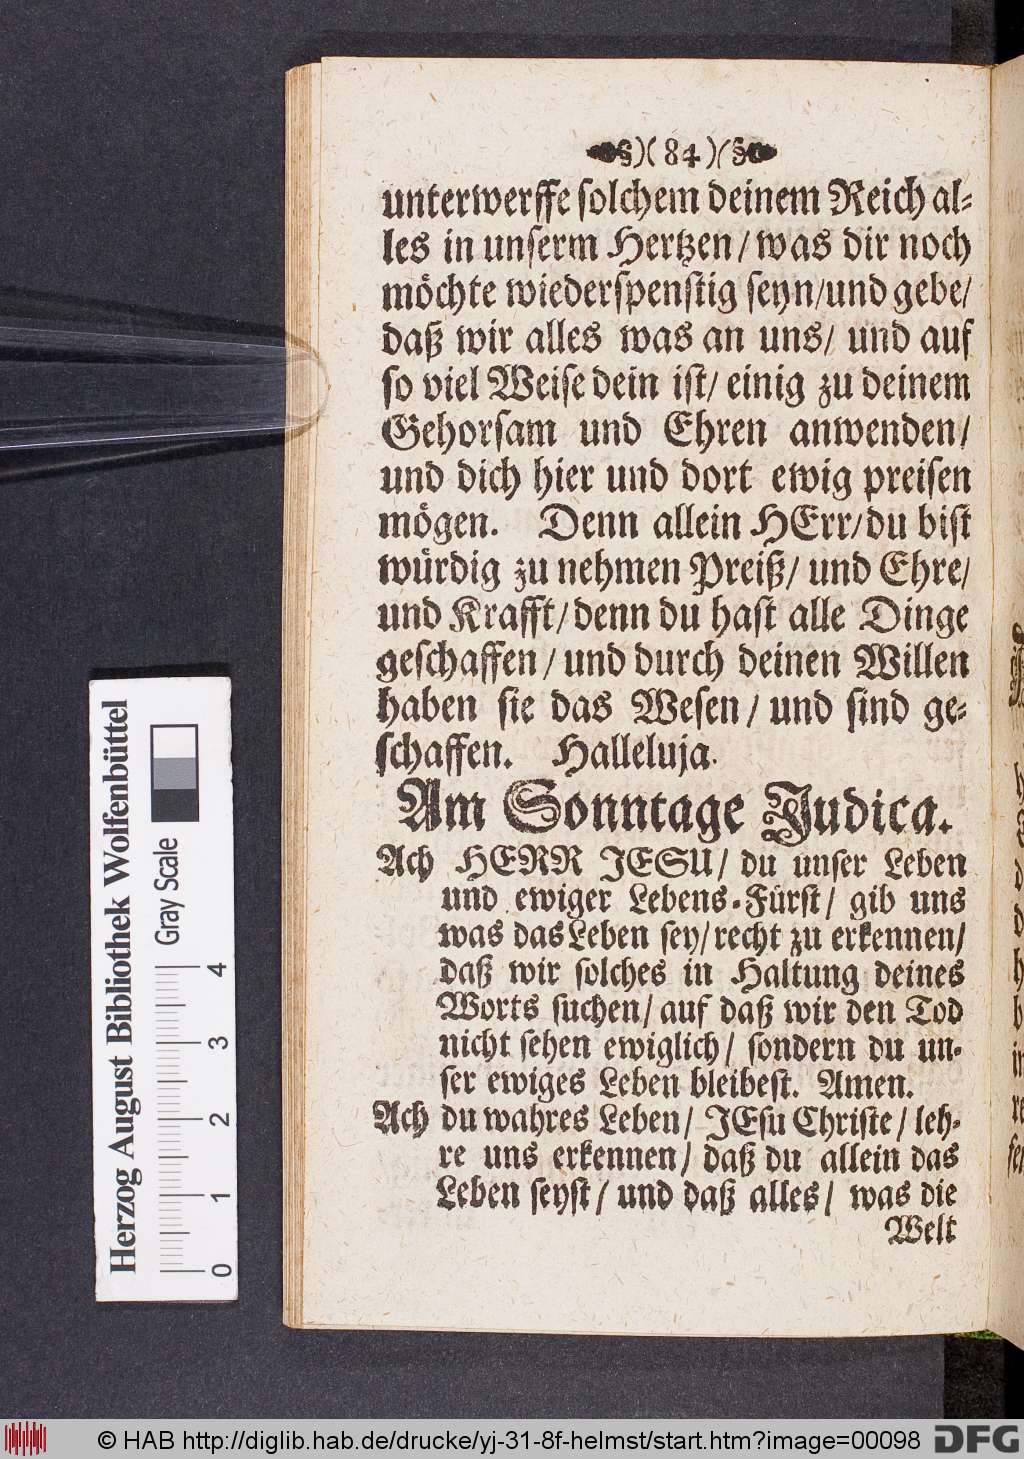 §)(84)(§
unterwerffe solchem deinem Reich al-
les in unserm Hertzen/ was dir noch
möchte wiederspenstig seyn/und gebe/
daß wir alles was an uns/ und auf
so viel Weise dein ist/ einig zu deinem
Gehorsam und Ehren anwenden/
und dich hier und dort ewig preisen
mögen. Denn allein HErr/du bist
würdig zu nehmen Preiß/ und Ehre/
und Krafft/denn du hast alle Dinge
geschaffen/ und durch deinen Willen
haben sie das Wesen/ und sind ge-
schaffen. Halleluja.
Am Sonntage Judica.
Ach HERR JESU/ du unser Leben
und ewiger Lebens-Fürst/ gib uns
was das Leben sey/recht zu erkennen/
daß wir solches in Haltung deines
Worts suchen/ auf daß wir den Tod
nicht sehen ewiglich/ sondern du un-
ser ewiges Leben bleibest. Amen.
Ach du wahres Leben/ JEsu Christe/ leh-
re uns erkennen/ daß du allein das
Leben seyst/ und daß alles/ was die
Welt
Herzog August Bibliothek Wolfenbüttel
Gray Scale
0 1 2 3 4
© HAB http://diglib.hab.de/drucke/yj-31-8f-helmst/start.htm?image=00098
DFG